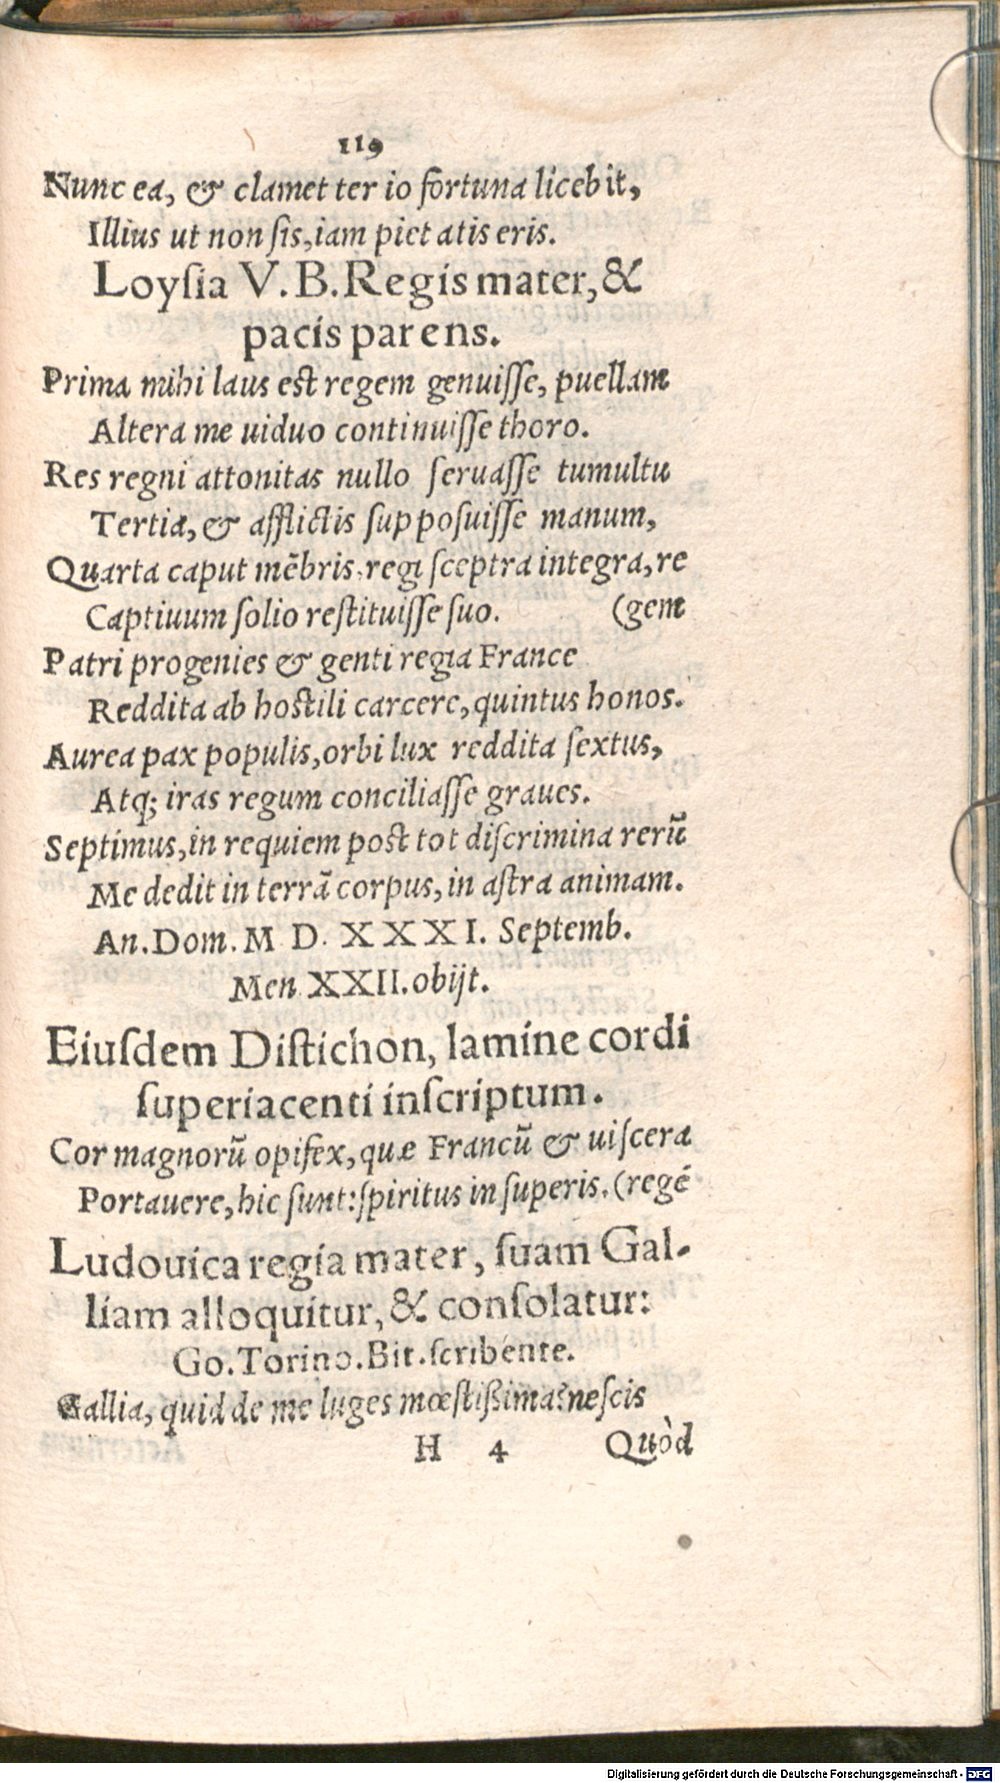 119
Nunc ea, & clamet ter io fortuna licebit,
Illius ut non ſis, iam pietatis eris.
Loyſia V. B. Regis mater, &
pacis parens.
Prima mihi laus est regem genuiſſe, puellam
Altera me uiduo continuiſſe thoro.
Res regni attonitas nullo ſeruaſſe tumultu
Tertia, & afflictis ſuppoſuiſſe manum,
Quarta caput mēbris, regi ſceptra integra, re
Captiuum ſolio reſtituiſſe ſuo. (gem
Patri progenies & genti regia France
Reddita ab hoſtili carcere, quintus honos.
Aurea pax populis, orbi lux reddita ſextus,
Atq; iras regum conciliaſſe graues.
Septimus, in requiem poſt tot diſcrimina rerū
Me dedit in terrā corpus, in aſtra animam.
An. Dom. M D. XXXI. Septemb.
Men XXII. obijt.
Eiuſdem Diſtichon, lamine cordi
ſuperiacenti inſcriptum.
Cor magnorū opifex, quæ Francū & uiſcera
Portauere, hic ſunt: ſpiritus in ſuperis. (regē
Ludouica regia mater, ſuam Gal-
liam alloquitur, & conſolatur:
Go. Torino. Bit. ſcribente.
Gallia, quid de me luges mœſtiſsima? neſcis
H 4 Quòd
Digitalisierung gefördert durch die Deutsche Forschungsgemeinschaft - DFG